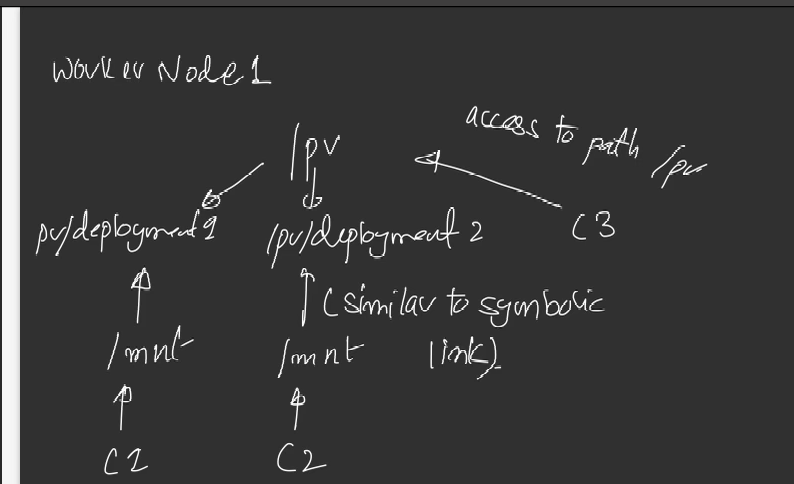 Worker Node 1
access to path /pv
/pv
pv/deployment1
/pv/deployment 2
C3
(similar to symbolic
link)
/mnt
/mnt
C1
C2